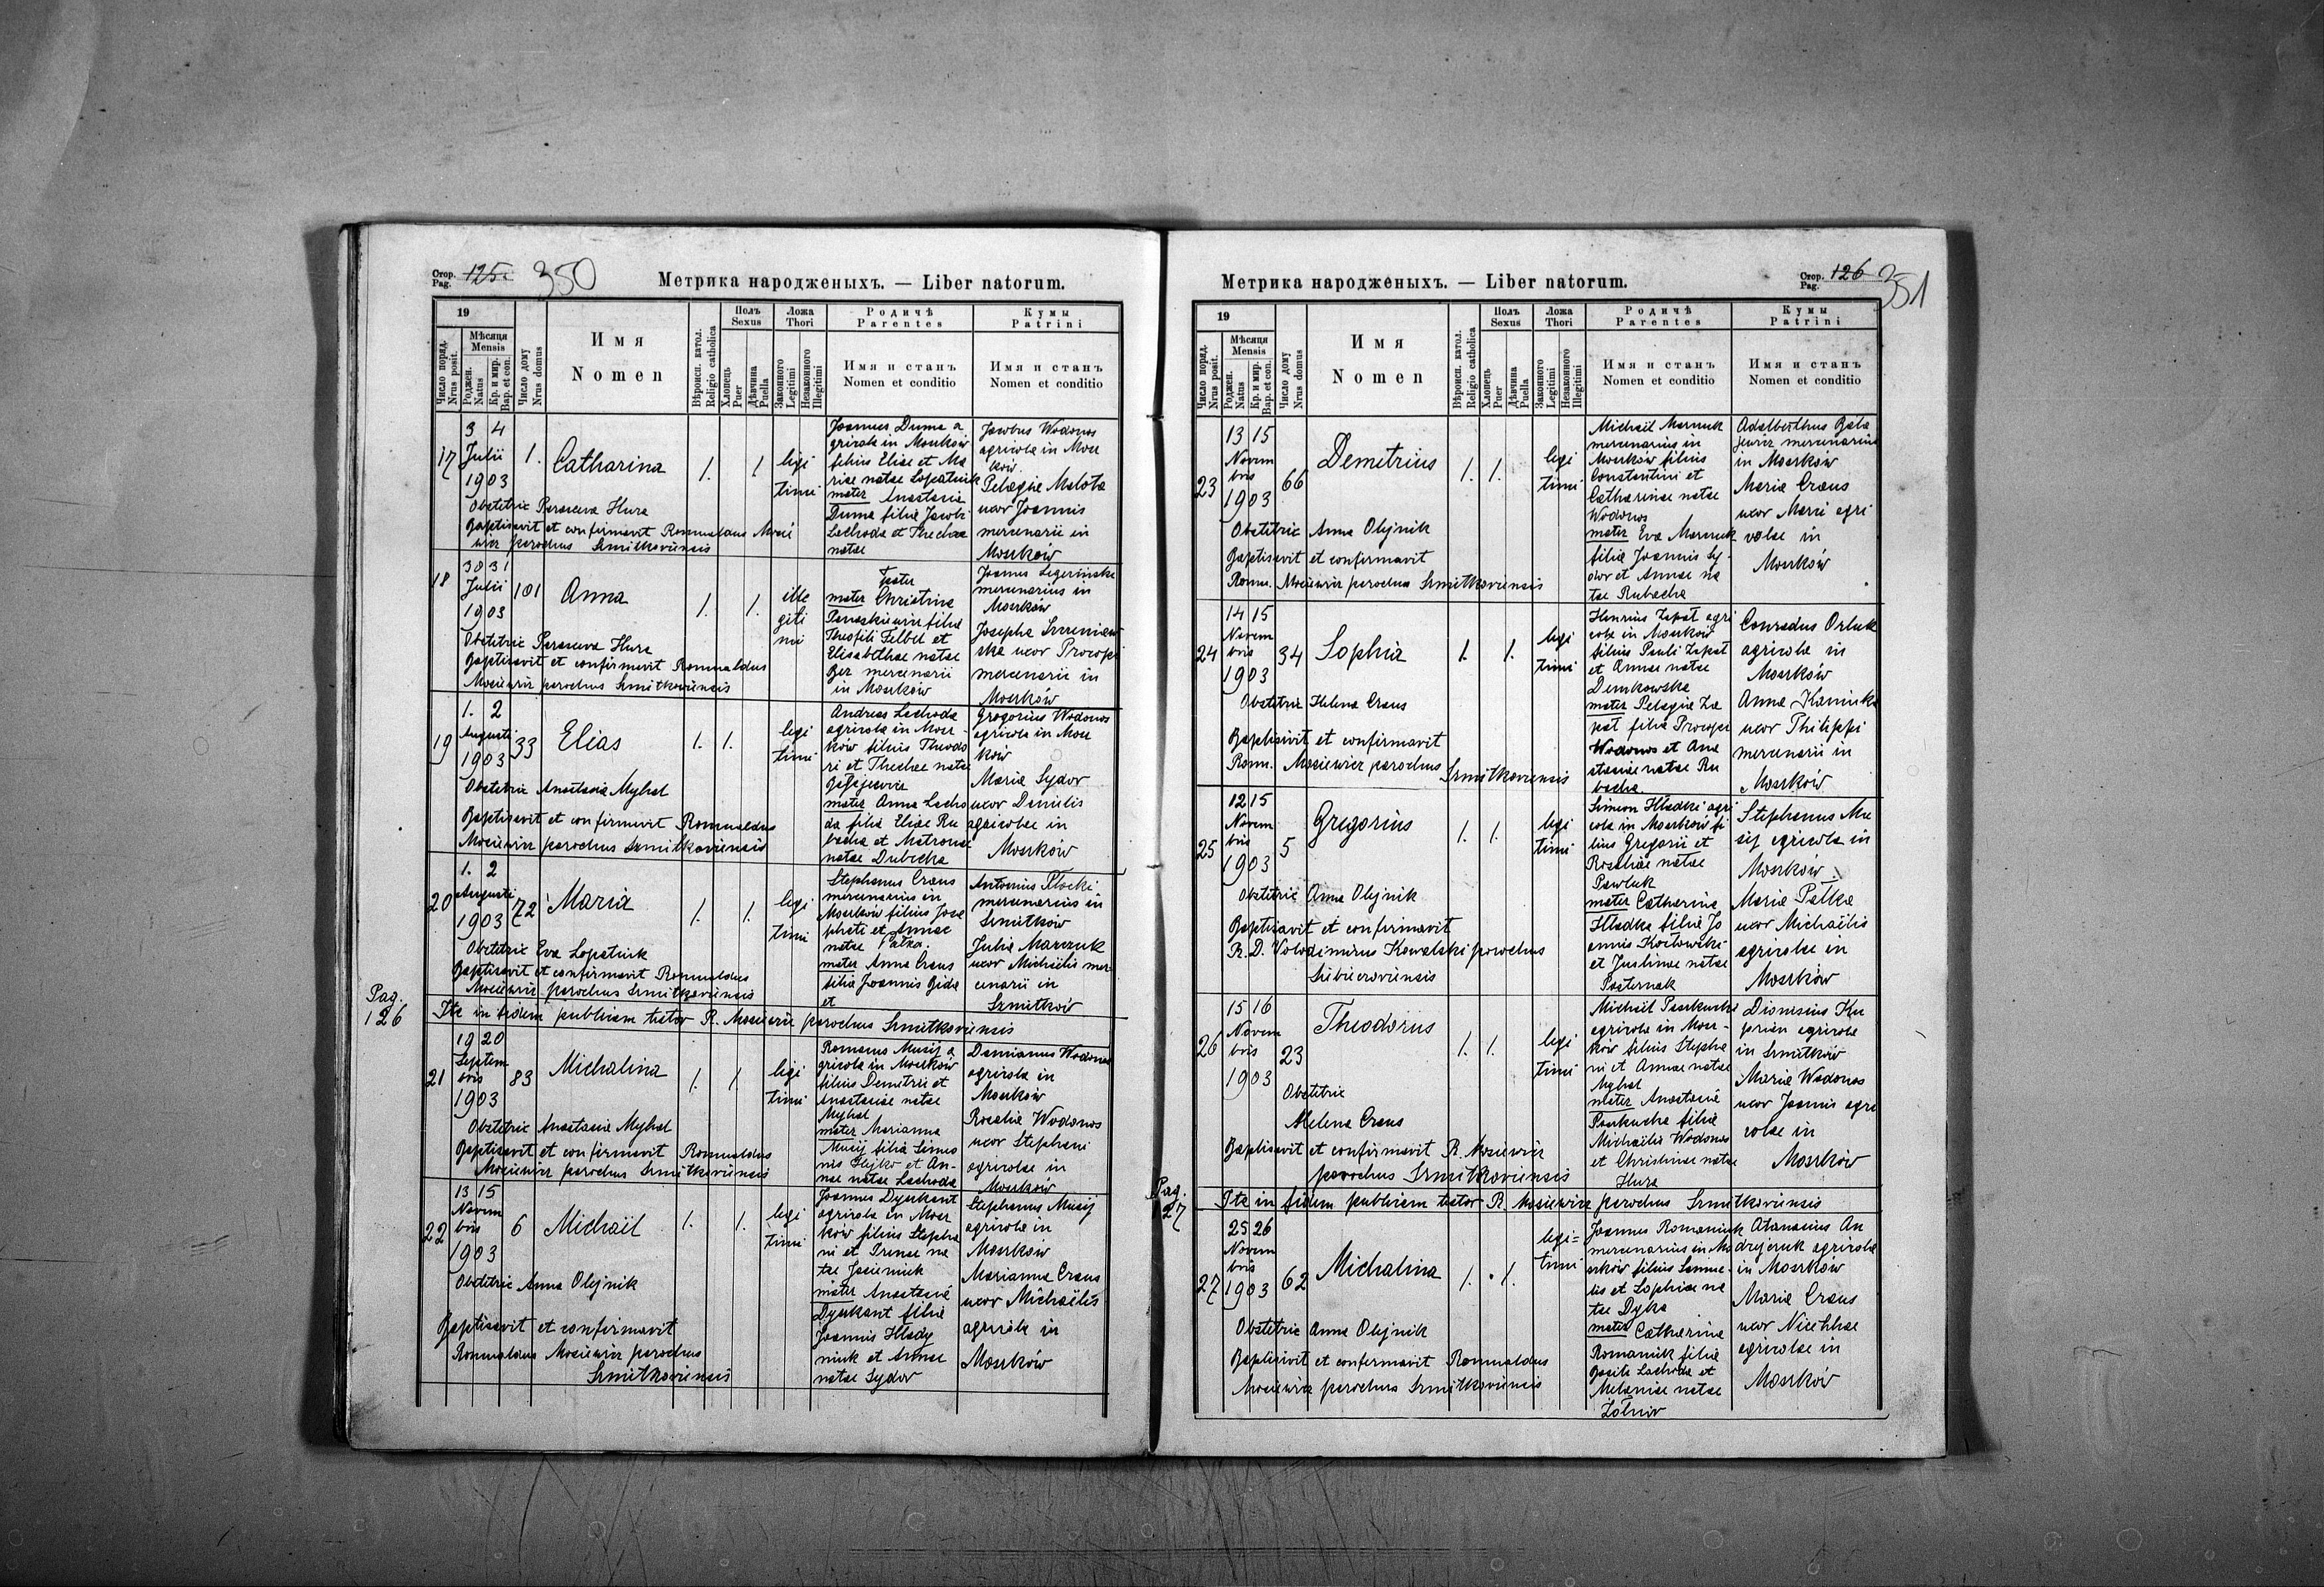 Стор. Pag. 125. 350
Метрика народженыхъ. — Liber natorum.
19
Число поряд. Nrus posit.
Мѣсяця Mensis
Роджен. Natus
Кр. и мир. Bap. et con.
Число дому Nrus domus
Имя
Nomen
Вѣроисп. катол. Religio catholica
Полъ Sexus
Хлопець Puer
Дѣвчина Puella
Ложа Thori
Законного Legitimi
Незаконного Illegitimi
Родичѣ
Parentes
Имя и станъ
Nomen et conditio
Кумы
Patrini
Имя и станъ
Nomen et conditio
17
3 4
Julii
1903
1.
Catharina
1.
1
legi
timi
Joannes Duma a
gricola in Moszków
filius Eliae et Ma
riae natae Lopatniuk
mater Anastasia
Duma filia Jacobi
Lachoda et Theclae
natae
Jacobus Wodonos
agricola in Mosz
ków.
Pelagia Malota
uxor Joannis
mercenarii in
Moszków
Obstetrix Parasceva Hura
Baptisavit et confirmavit Romualdus Mosie
wicz parochus Szmitkoviensis
18
30 31
Julii
1903
101
Anna
1.
1.
ille
giti
mi
Pater
mater Christina
filia
Theofili Felbel et
Elisabethae natae
Ber mercenarii
in Moszków
Joannes
mercenarius in
Moszków
Josepha
uxor Procopi
mercenarii in
Moszków
Obstetrix Parasceva Hura
Baptisavit et confirmavit Romualdus
Mosiewicz parochus Szmitkoviensis
19
1. 2
Augusti
1903
33
Elias
1. 1.
legi
timi
Andreas Lachoda
agricola in Mosz-
ków filius Theodo
ri et Theclae natae
mater Anna Lacho
da filia Eliae Ru
bacha et Matronae
natae Dubecka
Gregorius Wodonos
agricola in Mosz
ków
Maria Sydor
uxor Danielis
agricolae in
Moszków
Obstetrix Anastasia Myhal
Baptisavit et confirmavit Romualdus
Mosiewicz parochus Szmitkoviensis
20
1. 2
Augusti
1903
72
Maria
1.
1.
legi
timi
Stephanus Craus
mercenarius in
Moszków filius Josa
phati et Annae
natae Patka.
mater Anna Craus
filia Joannis Gida
et
Antonius Plocki
mercenarius in
Szmitków
Julia Marczuk
uxor Michaëlis mer
cenarii in
Szmitków
Obstetrix Eva Lopatniuk
Baptisavit et confirmavit Romualdus
Mosiewicz parochus Szmitkoviensis
Pag.
126
Ita in fidem publicam testor R. Mosiewicz parochus Szmitkoviensis
21
19 20
Septem
bris
1903
83
Michalina
1.
1.
legi
timi
Romanus Musij a
gricola in Moszków
filius Demetrii et
Anastasiae natae
Myhal
mater Marianna
Musij filia Simeo
nis Hejko et An-
nae natae Lachoda
Damianus Wodonos
agricola in
Moszków
Rosalia Wodonos
uxor Stephani
agricolae in
Moszków
Obstetrix Anastasia Myhal
Baptisavit et confirmavit Romualdus
Mosiewicz parochus Szmitkoviensis
22
13 15
Novem
bris
1903
6
Michaël
1.
1.
legi
timi
Joannes Dyszkant
agricola in Mosz
ków filius Stepha
ni et Irenae na
tae Jasieniuk
mater Anastasia
Dyszkant filia
Joannis Hlady
niuk et Annae
natae Sydor
Stephanus Musij
agricola in
Moszków
Marianna Craus
uxor Michaëlis
agricola in
Moszków
Obstetrix Anna Olejnik
Baptisavit et confirmavit
Romualdus Mosiewicz parochus
Szmitkoviensis
Метрика народженыхъ. — Liber natorum.
Стор. Pag. 126 351
19
Число поряд. Nrus posit.
Мѣсяця Mensis
Роджен. Natus
Кр. и мир. Bap. et con.
Число дому Nrus domus
Имя
Nomen
Вѣроисп. катол. Religio catholica
Полъ Sexus
Хлопець Puer
Дѣвчина Puella
Ложа Thori
Законного Legitimi
Незаконного Illegitimi
Родичѣ
Parentes
Имя и станъ
Nomen et conditio
Кумы
Patrini
Имя и станъ
Nomen et conditio
23
13 15
Novem
bris
1903
66
Demetrius
1. 1.
legi
timi
Michaël Marczuk
mercenarius in
Moszków filius
Constantini et
Catharinae natae
Wodonos
mater Eva Marczuk
filia Joannis Sy-
dor et Annae na
tae Rubacha
Adalberthus
mercenarius
in Moszków
Maria Craus
uxor Marci agri
colae in
Moszków
Obstetrix Anna Olejnik
Baptisavit et confirmavit
Rom. Mosiewicz parochus Szmitkoviensis
24
14 15
Novem
bris
1903
34
Sophia
1.
1.
legi
timi
Henricus Zapat agri
cola in Moszków
filius Pauli Zapat
et Annae natae
Demkowska
mater Pelagia Za
pat filia Procopi
Wodonos et Ana
stasiae natae Ru
bacha.
Conradus Orluk
agricola in
Moszków
Anna Kaminska
uxor Philippi
mercenarii in
Moszków
Obstetrix Helena Craus
Baptisavit et confirmavit
Rom. Mosiewicz parochus Szmitkoviensis
25
12 15
Novem
bris
1903
5
Gregorius
1. 1.
legi
timi
Simeon Hladki agri
cola in Moszków fi
lius Gregorii et
Rosaliae natae
Pawluk
mater Catharina
Hladka filia Jo
annis Kozlowski
et Justinae natae
Pasternak
Stephanus Mu
sij agricola in
Moszków.
Maria Patka
uxor Michaëlis
agricolae in
Moszków
Obstetrix Anna Olejnik
Baptisavit et confirmavit
R. D. Volodimirus Kowalski parochus
26
15 16
Novem
bris
1903
23
Theodorus
1. 1.
legi
timi
Michaël
agricola in Mosz-
ków filius Stepha
ni et Annae natae
Myhal
mater Anastasia
filia
Michaëlis Wodonos
et Christinae natae
Hura
Dionisius Ku
prian agricola
in Szmitków
Maria Wodonos
uxor Joannis agri
colae in
Moszków
Obstetrix
Helena Craus
Baptisavit et confirmavit R. Mosiewicz
parochus Szmitkoviensis
Pag.
127
Ita in fidem publicam testor R. Mosiewicz parochus Szmitkoviensis
27
25 26
Novem
bris
1903
62
Michalina
1. 1.
legi=
timi
Joannes Romaniuk
mercenarius in Mo
szków filius Samue-
lis et Sophiae na
tae Dyka
mater Catharina
Romaniuk filia
Basilii Lachoda et
Melaniae natae
Żółnir
Atanasius An
drejczuk agricola
in Moszków
Maria Craus
uxor Nicethae
agricolae in
Moszków
Obstetrix Anna Olejnik
Baptisavit et confirmavit Romualdus
Mosiewicz parochus Szmitkoviensis